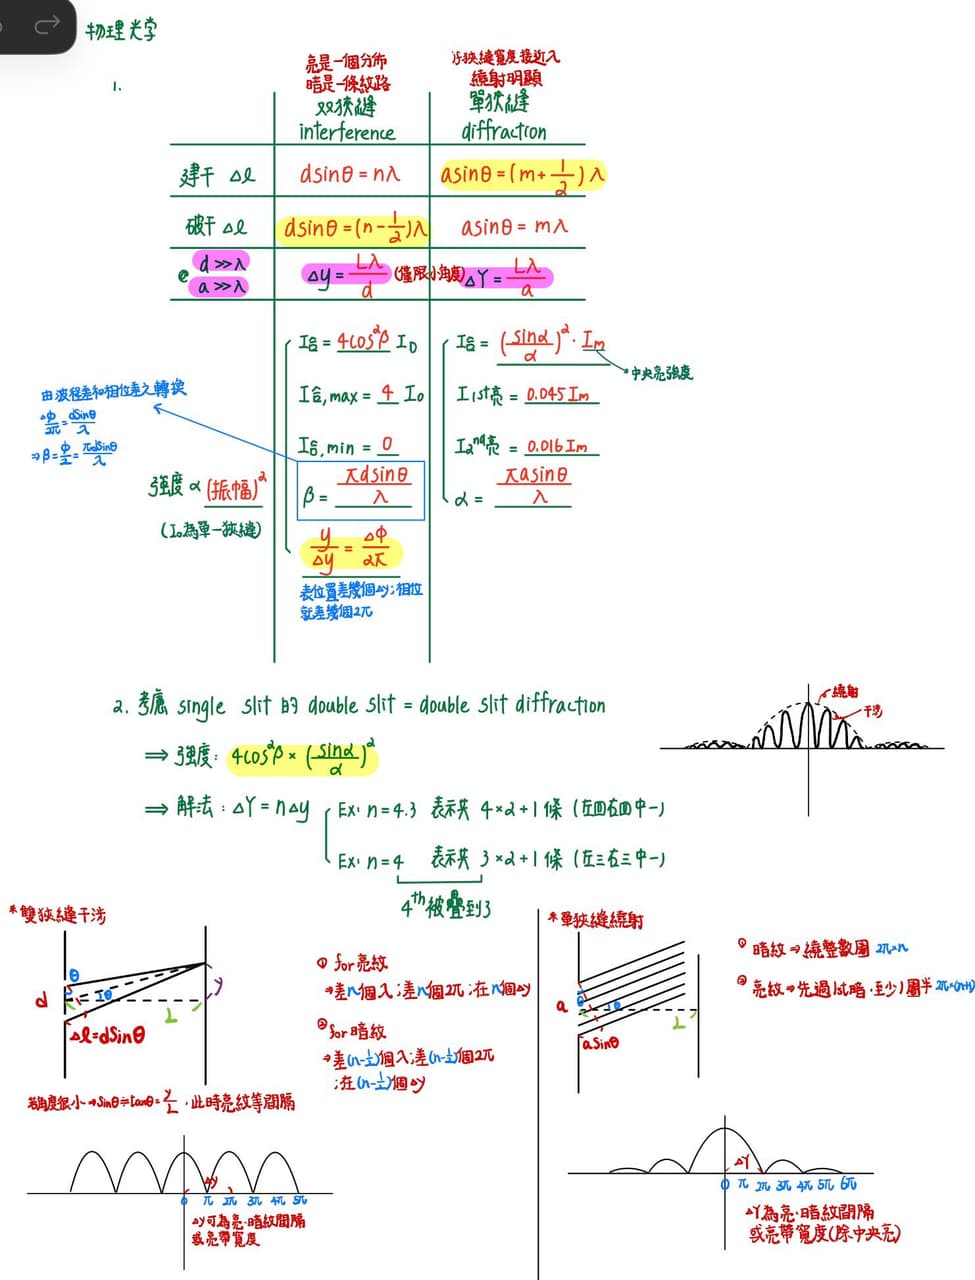 物理光學
1.
亮是一個分佈
暗是一條紋路
双狹縫
interference
狹縫寬度接近λ
繞射明顯
單狹縫
diffraction
建干 Δl
dsinθ = nλ
asinθ = (m+1/2)λ
破干 Δl
dsinθ = (n-1/2)λ
asinθ = mλ
@ d≫λ
a≫λ
Δy = Lλ/d (僅限小角度)
ΔY = Lλ/a
I合 = 4cos²β I₀
I合,max = 4 I₀
I合,min = 0
β = πdsinθ/λ
y/Δy = ΔΦ/2π
表位置差幾個Δy;相位
就差幾個2π
I合 = (sinα/α)²·Im
中央亮強度
I1st亮 = 0.045Im
I2nd亮 = 0.016Im
α = πasinθ/λ
由波程差和相位差之轉換
ΔΦ/2π = dsinθ/λ
⇒β=Φ/2=πdsinθ/λ
強度 ∝ (振幅)²
(I₀為單一狹縫)
2. 考慮 single slit 的 double slit = double slit diffraction
⇒ 強度: 4cos²β × (sinα/α)²
⇒ 解法: ΔY = nΔy
Ex: n=4.3 表示共 4×2+1 條 (左四右四中一)
Ex: n=4 表示共 3×2+1 條 (左三右三中一)
4th被疊到了
繞射
干涉
*雙狹縫干涉
d
θ
θ
L
y
Δl=dsinθ
若角度很小→sinθ≒tanθ=y/L ,此時亮紋等間隔
① for亮紋
→差n個λ;差n個2π;在n個Δy
② for暗紋
→差(n-1/2)個λ;差(n-1/2)個2π
;在(n-1/2)個Δy
Δy
0 π 2π 3π 4π 5π
Δy可為亮.暗紋間隔
或亮帶寬度
*單狹縫繞射
a
θ
θ
L
asinθ
① 暗紋⇒繞整數圈 2π×n
② 亮紋→先過1st暗.至少1圈半 2π×(n+½)
ΔY
0 π 2π 3π 4π 5π 6π
ΔY為亮.暗紋間隔
或亮帶寬度(除中央亮)